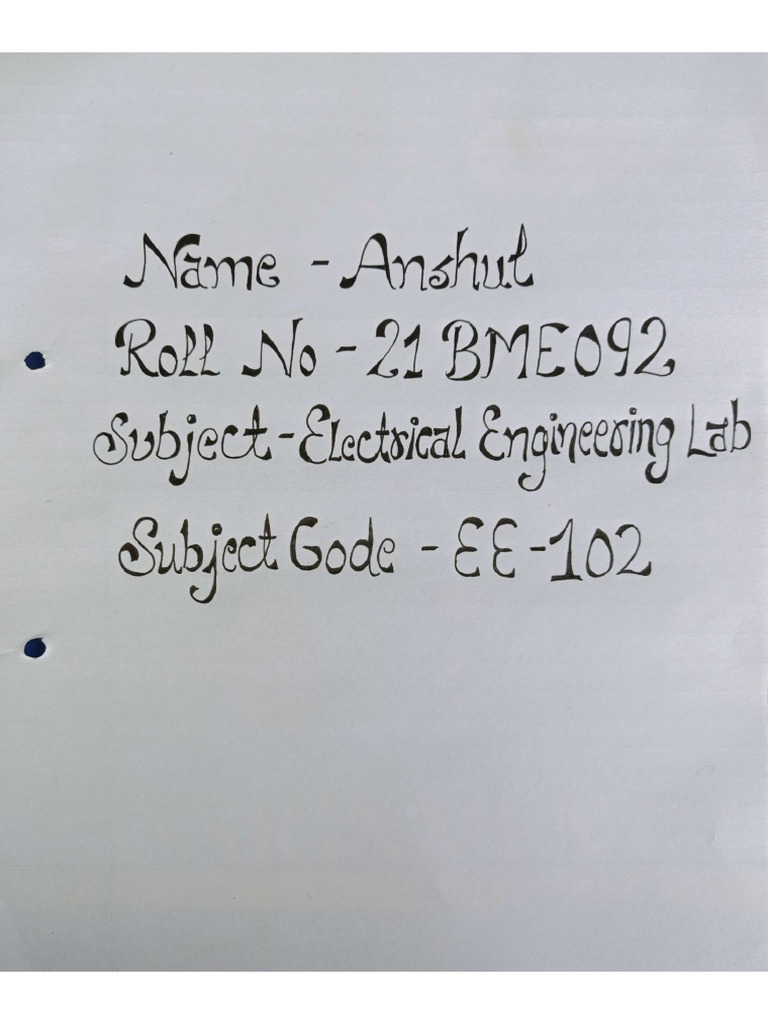 Name - Anshul
Roll No - 21 BME092
Subject - Electrical Engineering Lab
Subject Code - EE-102